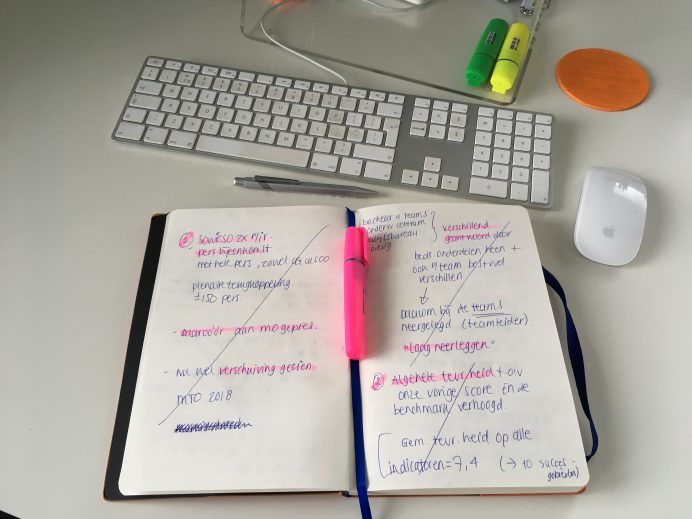 ① SOWIESO 2x p/jr.
pers bijeenkomst
met hele pers, zowel
plenaire terugkoppeling
± 150 pers
- daarvóór aan mo gepres.
- nu wel verschuiving gezien
MTO 2018
bachelor 4 teams
onderw centrum
overig
verschillend
geantwoord door
bedr. onderdelen heen +
ook p/team best wel
verschillen
↓
daarom bij de teams
neergelegd (teamleider).
"laag neerleggen"
② Algehele tevr.heid t.o.v
onze vorige score én de
benchmark verhoogd.
Gem. tevr.heid op alle
indicatoren = 7,4 (→ 10 succes-
gebieden)